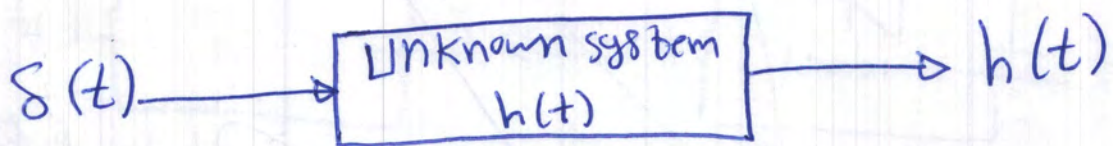 δ(t)
Unknown system
h(t)
h(t)